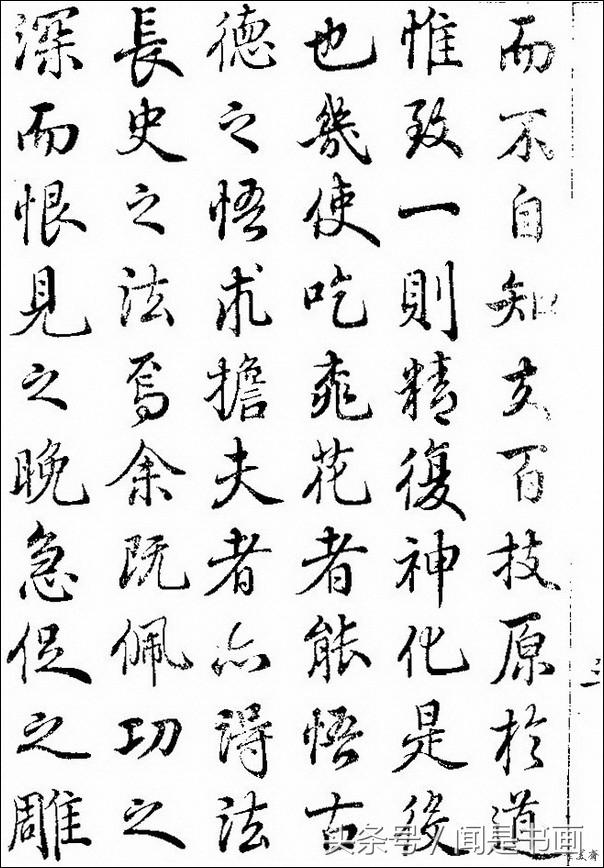 而不自知夫百技原於道
惟致一則精復神化是役
也幾使吃桃花者能悟古
德之悟求擔夫者亦得法
長史之法焉余既佩功之
深而恨見之晚急促之雕
头条号/闻是书画